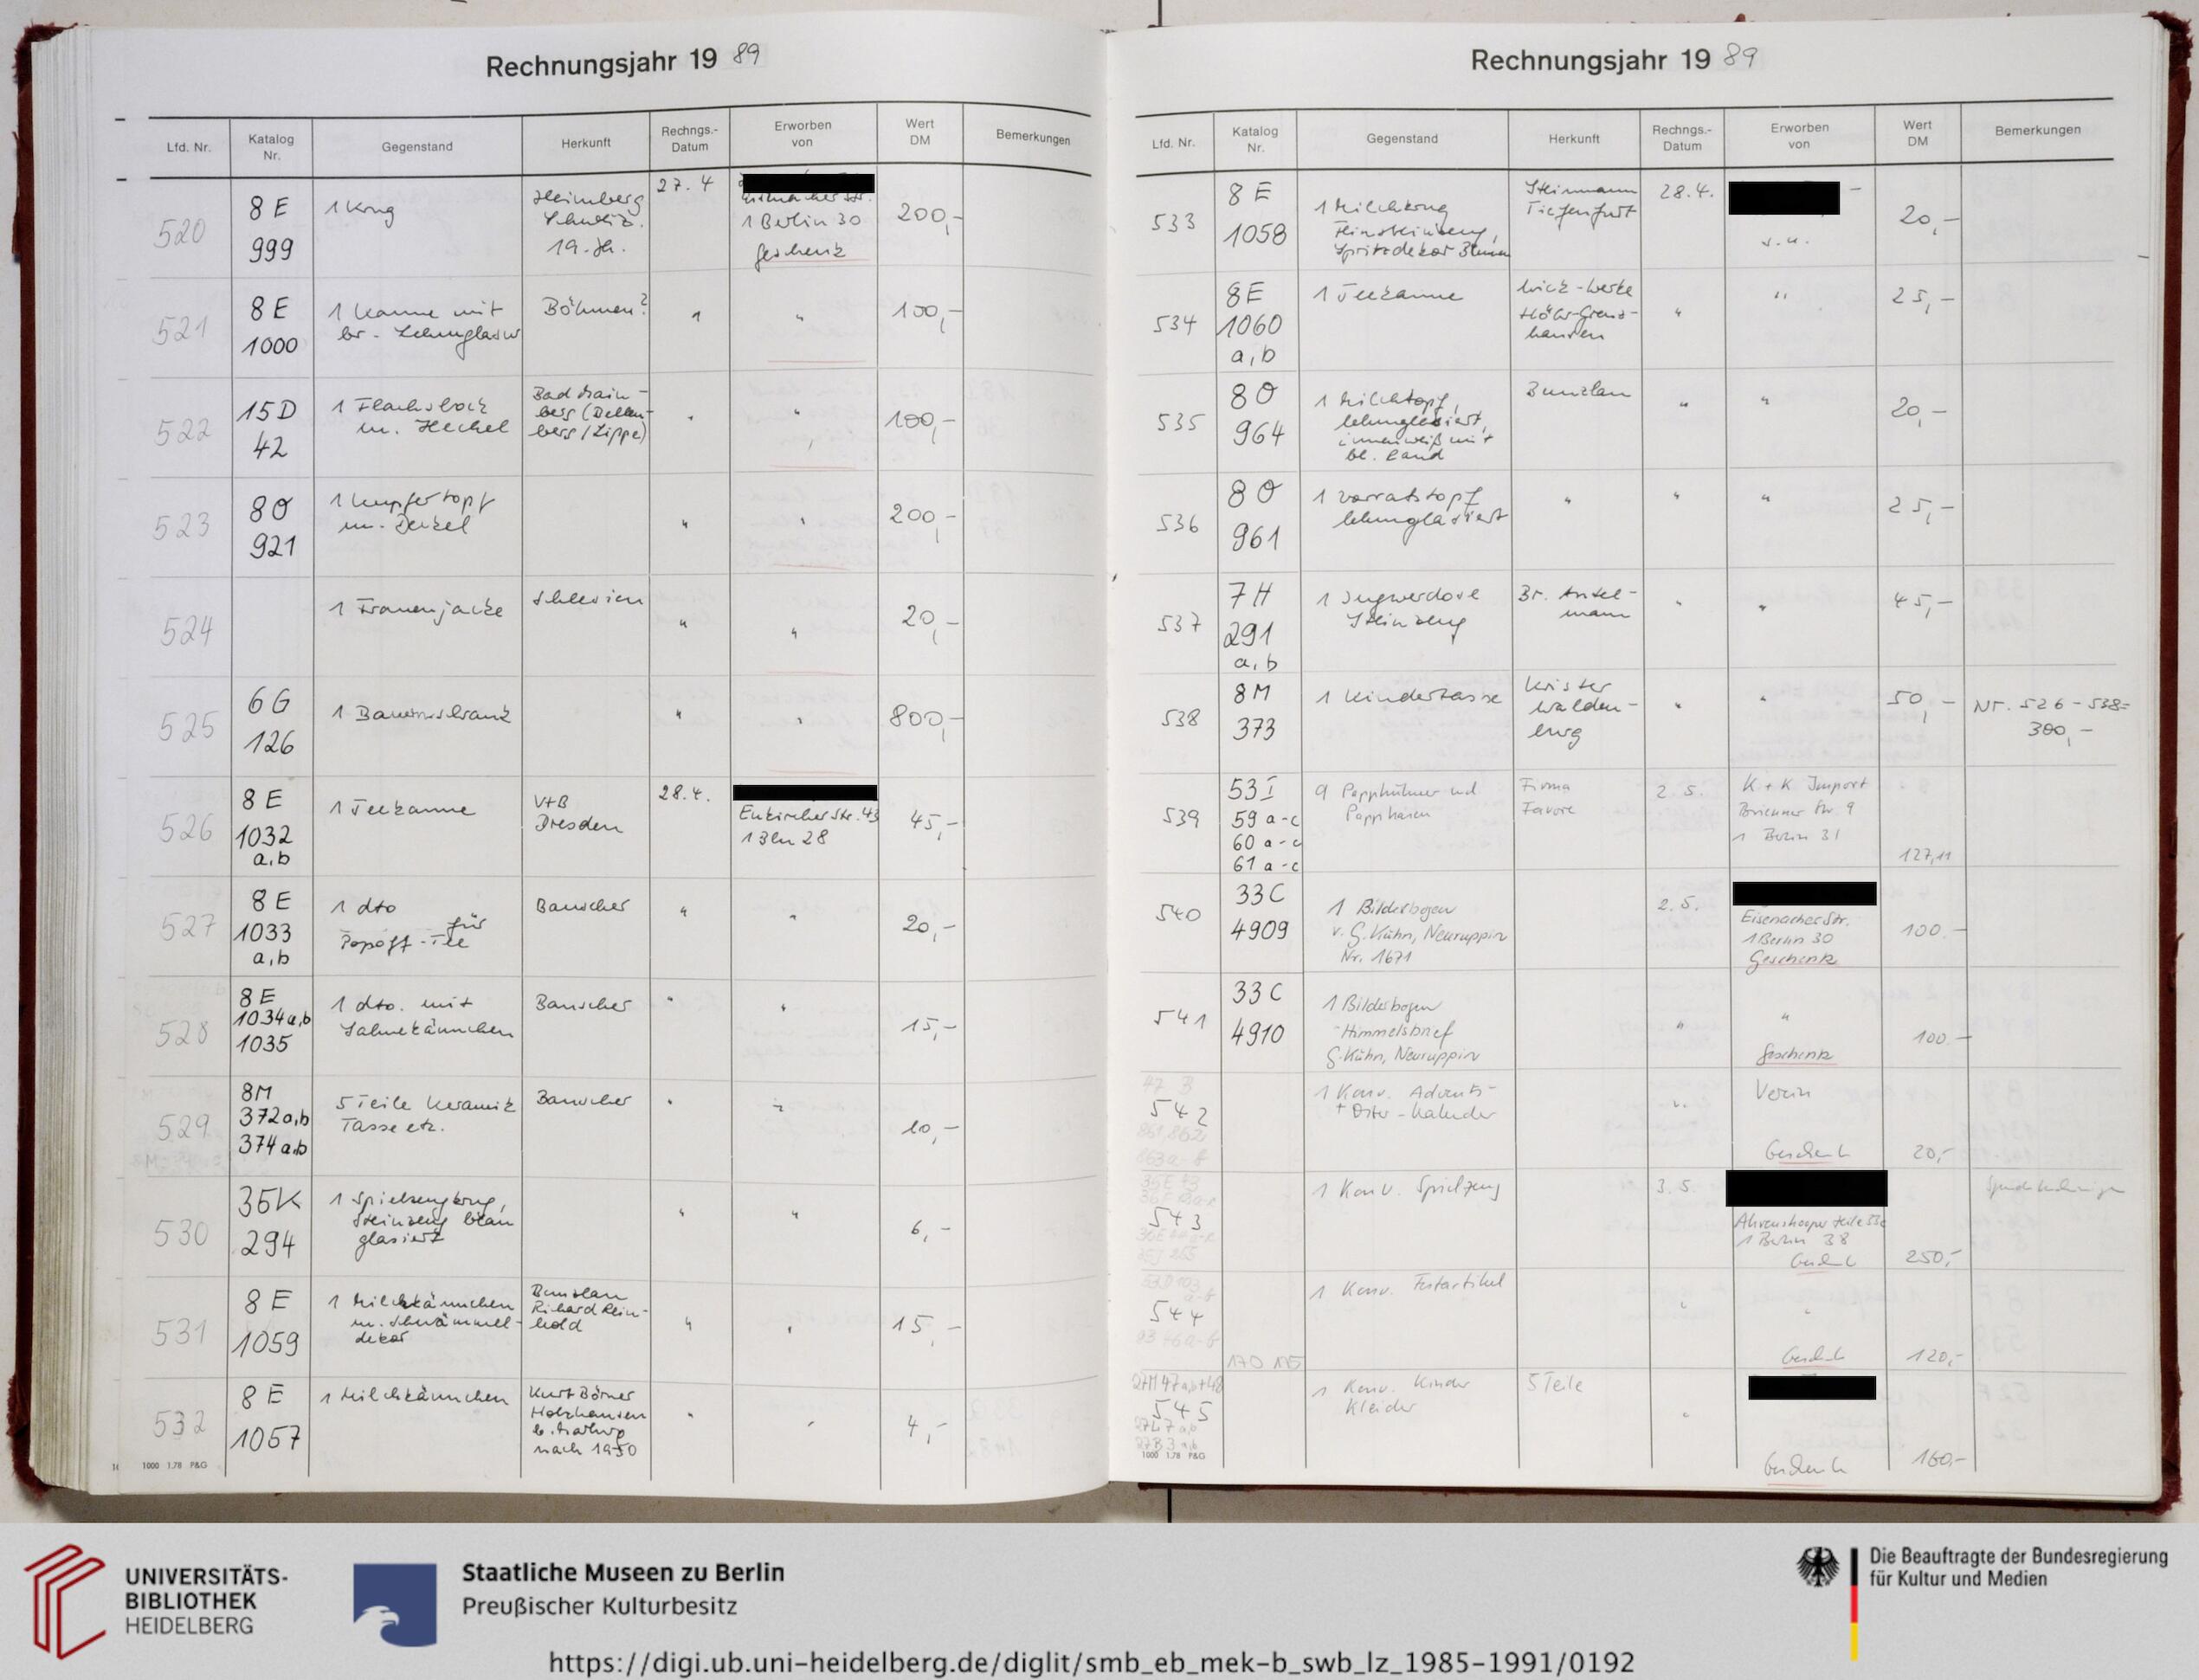 Rechnungsjahr 19 89
Lfd. Nr. Katalog Nr. Gegenstand Herkunft Rechngs.-Datum Erworben von Wert DM Bemerkungen
520 8 E 999 1 Krug Heimberg Schweiz. 19. Jh. 27. 4 1 Berlin 30 Geschenk 200,-
521 8 E 1000 1 Kanne mit br. Lehmglasur Böhmen? " " 100,-
522 15 D 42 1 Flachsbock m. Hechel Bad Mein-berg (Detten-berg / Lippe) " " 100,-
523 8 O 921 1 Kupfertopf m. Deckel " " 200,-
524 1 Frauenjacke Schlesien " " 20,-
525 6 G 126 1 Bauernschrank " " 800,-
526 8 E 1032 a,b 1 Teekanne V+B Dresden 28.4. Enkircher Str. 43 1 Bln 28 45,-
527 8 E 1033 a,b 1 dto für Popoff-Tee Bauscher " " 20,-
528 8 E 1034 a,b 1035 1 dto. mit Sahnekännchen Bauscher " " 15,-
529 8M 372 a,b 374 a,b 5 Teile Keramik Tasse etc. Bauscher " " 10,-
530 35K 294 1 Spielzeugkrug, Steinzeug blau glasiert " " 6,-
531 8 E 1059 1 Milchkännchen m. Schwämmel-dekor Bunzlau Richard Rein-hold " " 15,-
532 8 E 1057 1 Milchkännchen Kurt Börner Holzhausen b. Marburg nach 1950 " " 4,-
1000 1.78 P&G
Rechnungsjahr 19 89
Lfd. Nr. Katalog Nr. Gegenstand Herkunft Rechngs.-Datum Erworben von Wert DM Bemerkungen
533 8 E 1058 1 Milchkrug Feinsteinzeug, Spritzdekor Blumen Steinmann Tiefenfurt 28.4. s.u. 20,-
534 8E 1060 a,b 1 Teekanne Wick-Werke Höhr-Grenz-hausen " " 25,-
535 8 O 964 1 Milchtopf, lehmglasiert, innen weiß mit bl. Rand Bunzlau " " 20,-
536 8 O 961 1 Vorratstopf lehmglasiert " " " 25,-
537 7 H 291 a,b 1 Ingwerdose Steinzeug Br. Ansel-mann " " 45,-
538 8M 373 1 Kindertasse Krister Walden-burg " " 50,- Nr. 526 - 538= 300,-
539 53 I 59 a-c 60 a-c 61 a-c 9 Papphühner und Papphasen Firma Favore 2. 5. K + K Import Str. 9 1 Berlin 31 127,11
540 33 C 4909 1 Bilderbogen v. G. Kühn, Neuruppin Nr. 1671 2. 5. Eisenacher Str. 1 Berlin 30 Geschenk 100.-
541 33 C 4910 1 Bilderbogen Himmelsbrief G. Kühn, Neuruppin " " Geschenk 100.-
542 1 Konv. Advents- + Oster-Kalender " Verein Geschenk 20,-
543 1 Konv. Spielzeug 3. 5. 1 Berlin 38 Geschenk 250,-
544 1 Konv. Festartikel " " Geschenk 120,-
545 1 Konv. Kinder Kleider 5 Teile " Geschenk 160,-
1000 1.78 P&G
UNIVERSITÄTS-
BIBLIOTHEK
HEIDELBERG
Staatliche Museen zu Berlin
Preußischer Kulturbesitz
Die Beauftragte der Bundesregierung
für Kultur und Medien
https://digi.ub.uni-heidelberg.de/diglit/smb_eb_mek-b_swb_lz_1985-1991/0192